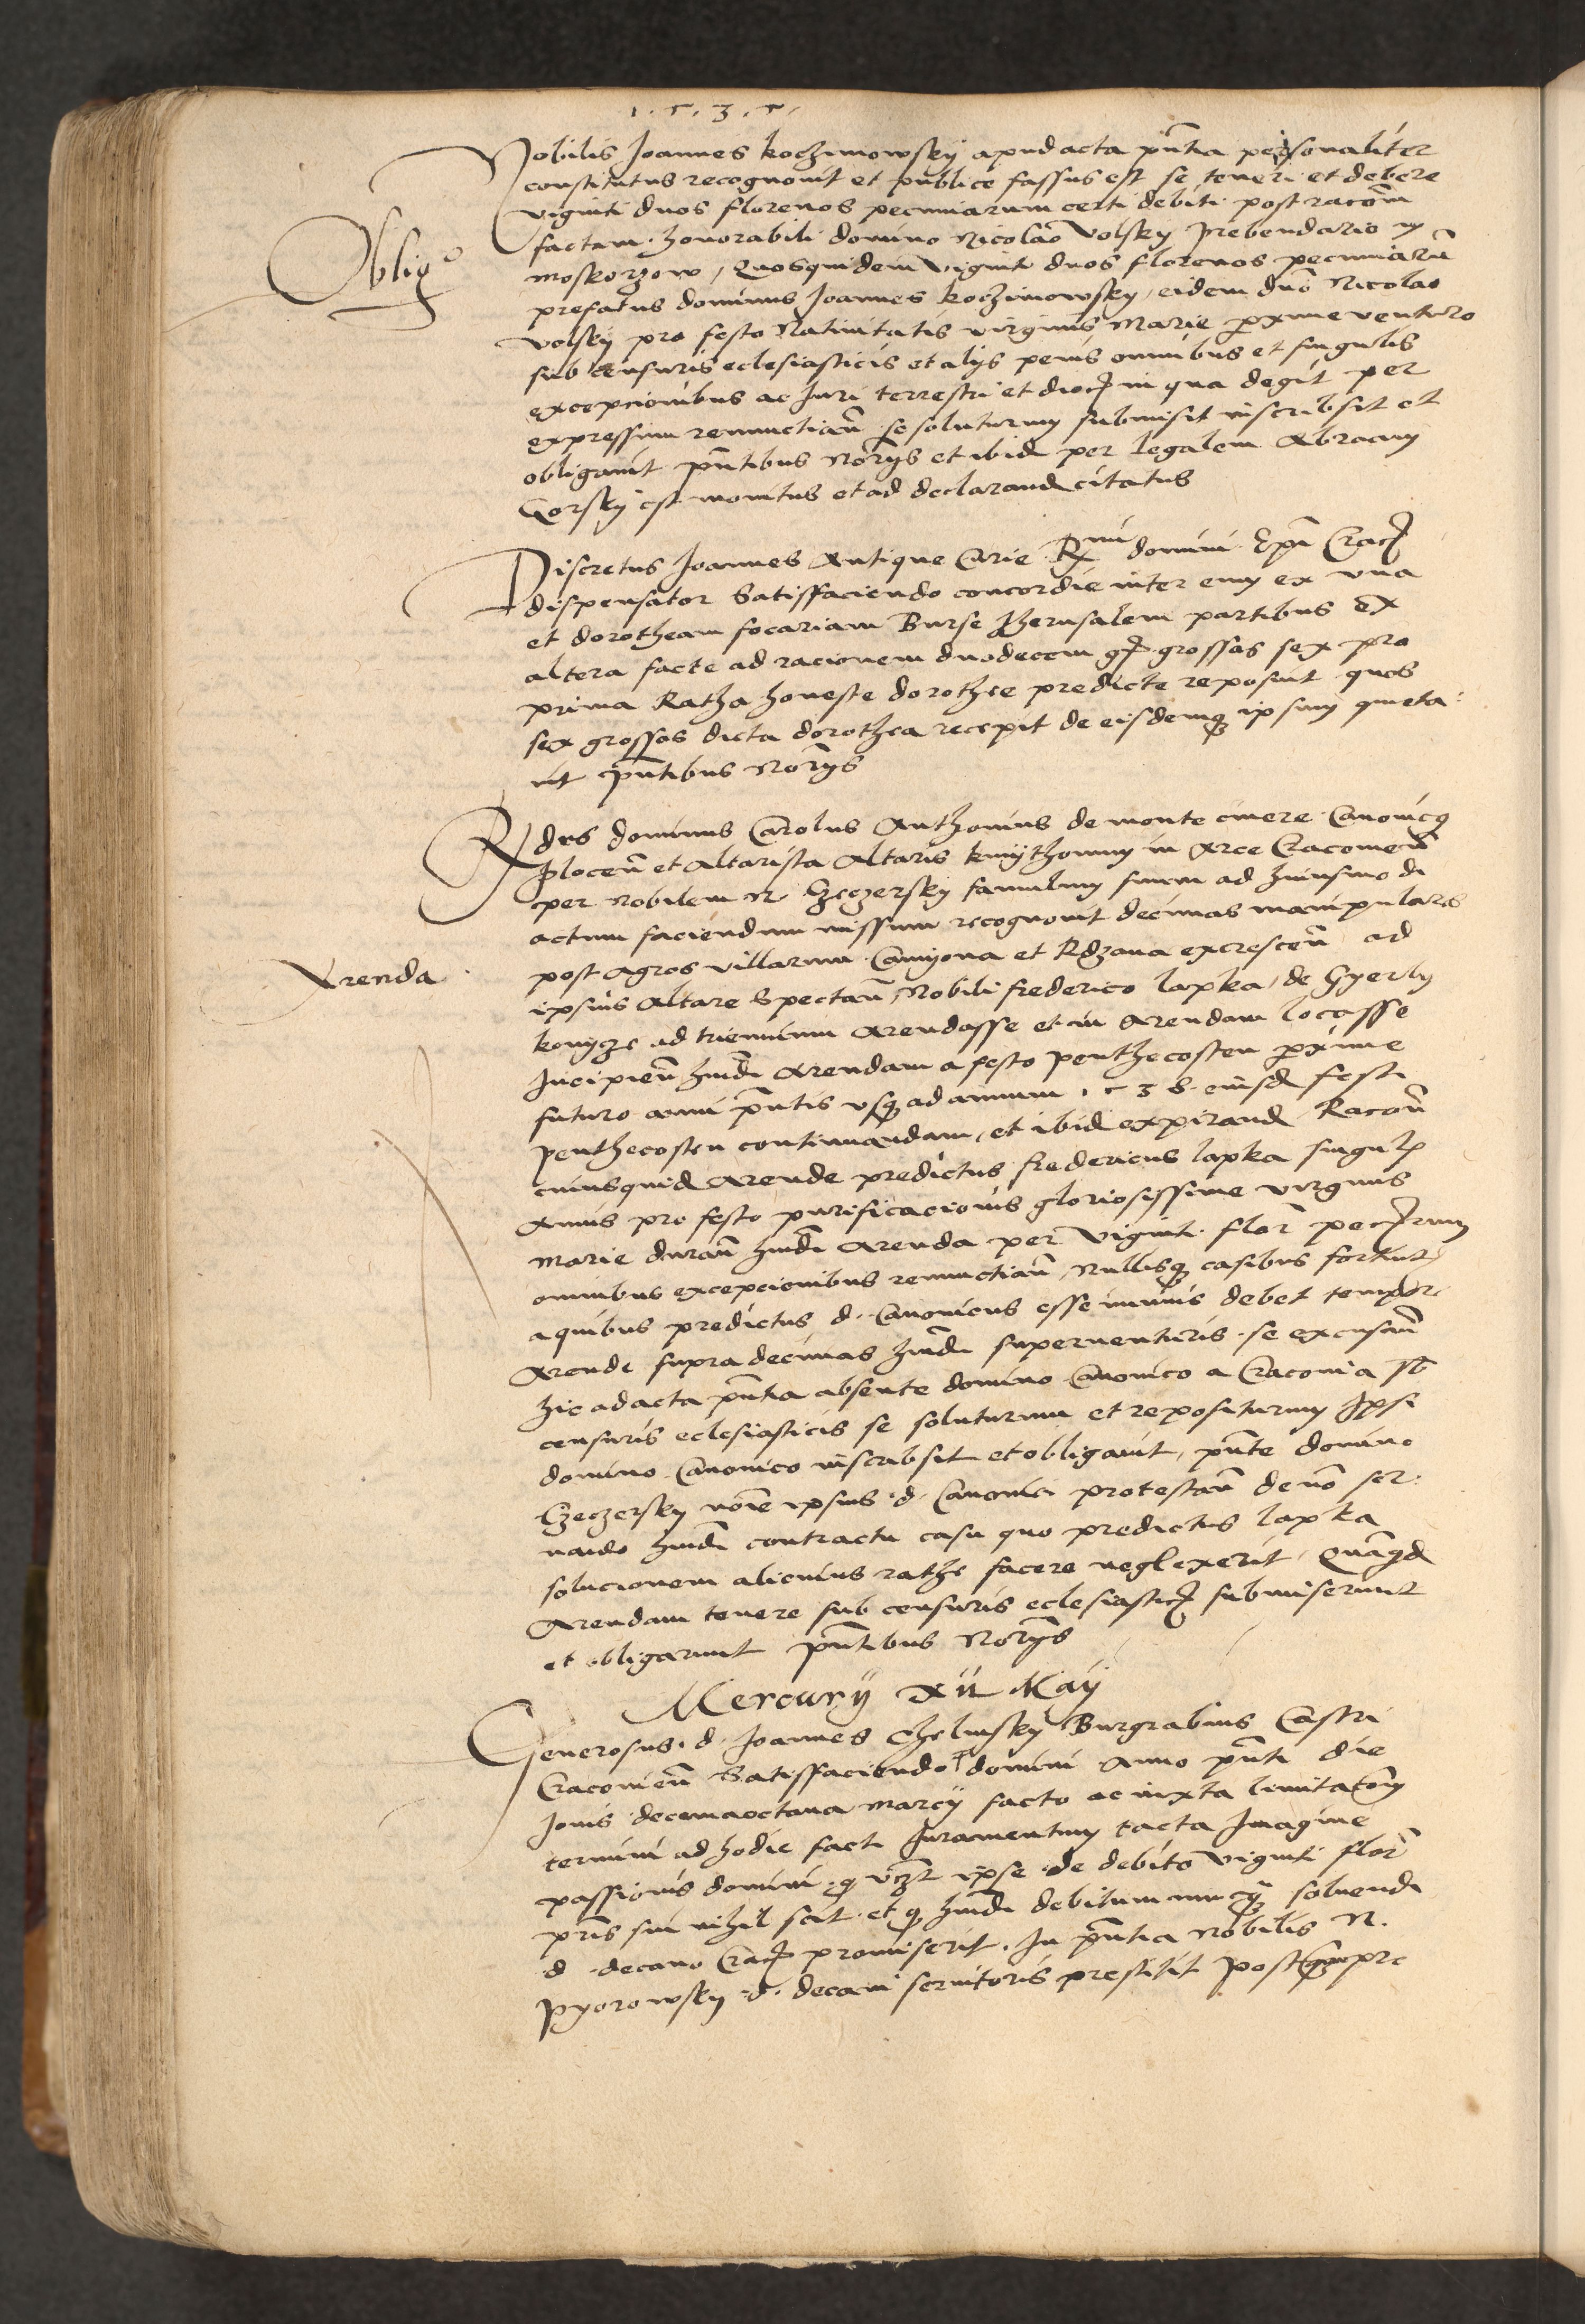 1.5.3.5.
Nobilis Joannes koczmowsky apud acta pñtia personaliter
constitutus recognovit et publice fassus est se teneri et debere
viginti duos florenos pecuniarum certi debiti post racoñ
factam honorabili domino Nicolao Volsky prebendario in
Obligo
moskorzow, Quosquidem viginti duos florenos pecuniarũ
prefatus dominus Joannes koczimowsky, eidem dño Nicolao
volsky pro festo Nativitatis virginis Marie pxime venturo
sub censuris eclesiasticis et alys penis omnibus et singulis
excepcionibus ac Juri terrestri et dioc in qua degit per
expressum renunctiañ se soluturum submisit inscribsit et
obligavit pñtibus Norijs et ibid per legalem Abraam
Gorsky est monitus et ad declarand citatus
Discretus Joannes Antique Curie Rmi domini Epi Crac
dispensator Satisfaciendo concordie inter eum ex una
et dorotheam focariam Burse Jherusalem partibus ex
altera facte ad racionem duodecem gr grossos sex pro
prima Ratha honeste dorothee predicte reposuit quos
sex grossos dicta dorothea recepit de eisdemq ipsum quieta
vit pñtibus Norijs
Rndus dominus Carolus Anthonius de monte cinere Canonicq
plocen̄ et Altarista Altaris kmythonum in Arce Cracovien̄
per Nobilem N. Czeczersky famulum suum ad huiusmodi
actum faciendum missum recognovit decimas manipulares
Arenda
post agros villarum Camyona et Rdzana excrescen̄ ad
ipsius Altare Spectan̄ Nobili frederico lapka, de Gyerly
konycze ad triennium Arendasse et in Arendam locasse
Incipien̄ hmdi Arendam a festo penthecosten pxime
futuro anni pñtis usq ad annum 1538 eiusd festi
penthecosten continuandam, et ibid expirand Racoñ
cuiusquid Arende predictus fredericus lapka singul
Annis pro festo purificacionis gloriosissime virginis
Marie duran̄ hmdi Arenda per viginti flor pecrum
omnibus excepcionibus renunctian̄, Nullisq casibus fortuit
a quibus predictus d. Canonicus esse inmunis debet tempore
Arende supra decimas hmdi superventuris se excusan̄
hic ad acta pñtia absente domino Canonico a Cracovia sb
censuris eclesiasticis se soluturum et repositurum Ipsi
domino Canonico inscribsit et obligavit, pñte domino
Czeczersky noĩe ipsius d. Canonici protestan̄ de nõ ser
vando hmdi contractu casu quo predictus lapka
solucionem alicuius rathe facere neglexerit, Quamqd
Arendam tenere sub censuris eclesiastic submiserunt
et obligarunt pñtibus Norijs
Mercurij xii Maij
Generosus d. Joannes Chelmsky Burgrabius Castri
Cracovien̄ Satisfaciendo domini Anno pñti die
Jovis decimaoctava marcij facto ac iuxta limitacõm
termini ad hodie facti Juramentum tacta Imagine
passionis domini q vizt ipse de debito viginti flor
pris sui nihil scit et q hmdi debitum nuncq solvendi
d. decano Crac promiserit. In pñtia Nobilis N.
Pyorowsky d. decani servitoris prestitit